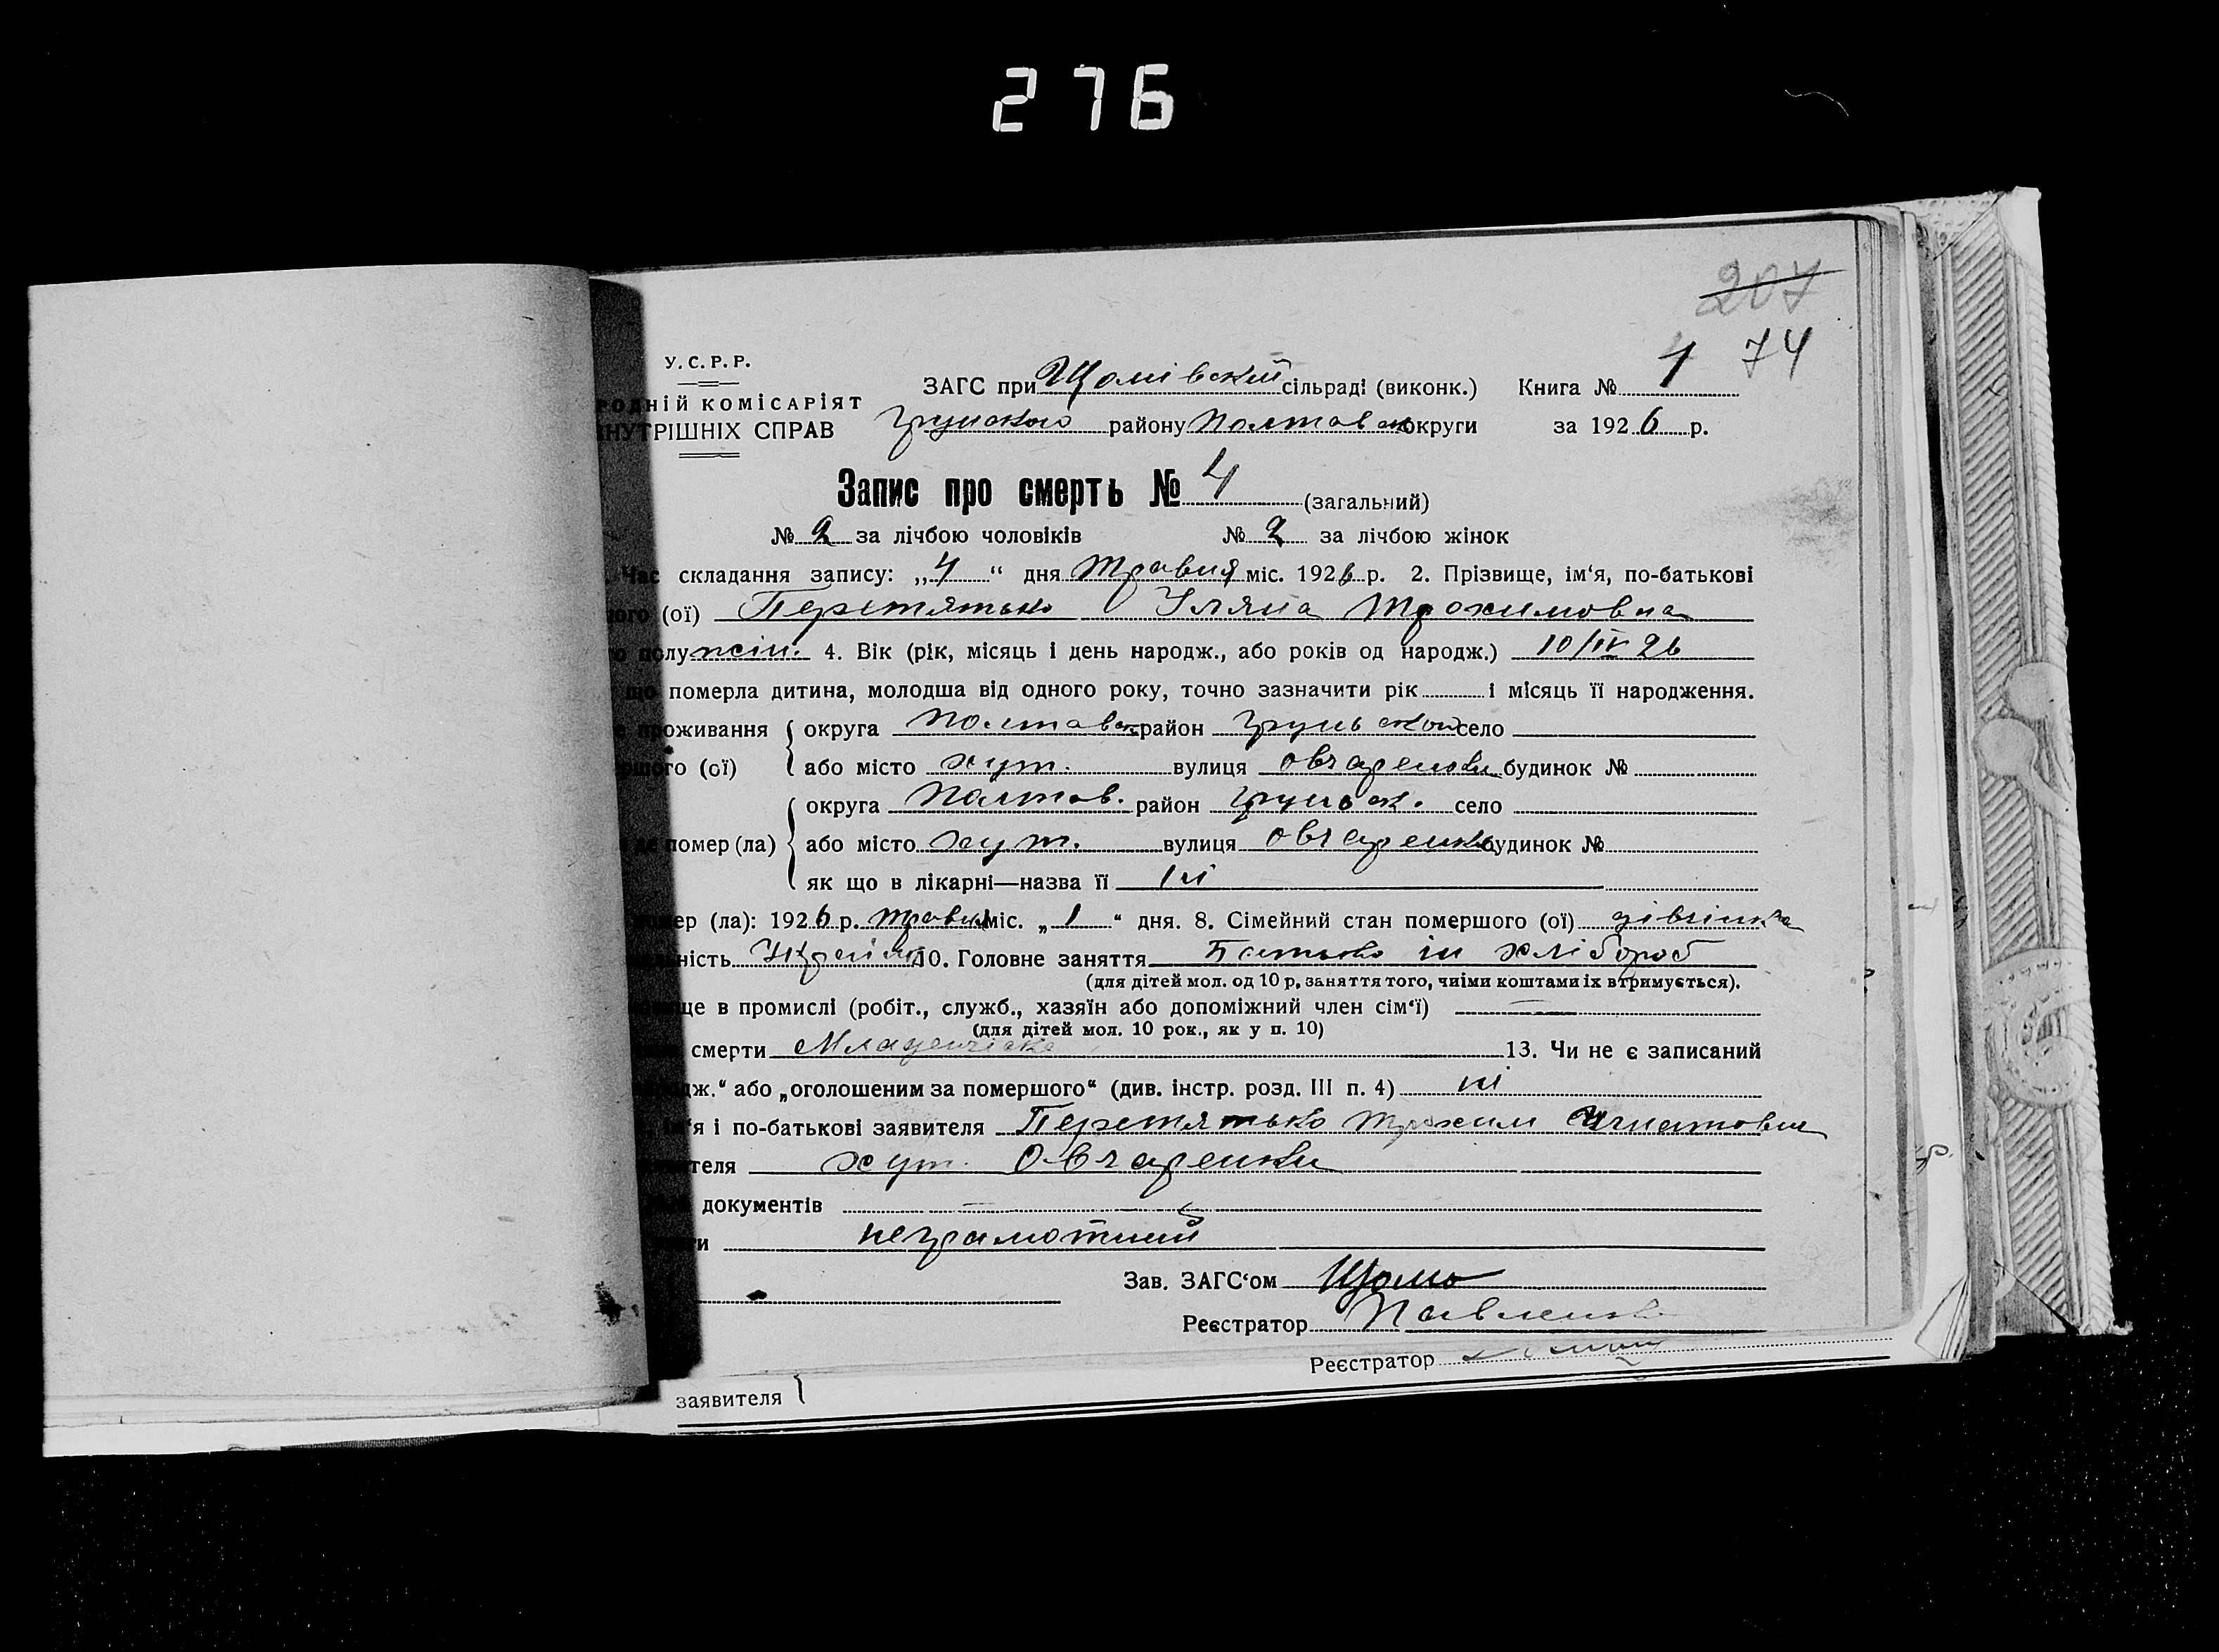 276
207
74
У.С.Р.Р.
ЗАГС при Щомівский сільраді (виконк.) Книга № 1
РОДНІЙ КОМІСАРІЯТ
Грунского району Полтавск округи за 1926 р.
НУТРІШНІХ СПРАВ
Запис про смерть № 4 (загальний)
№ 2 за лічбою чоловіків № 2 за лічбою жінок
Час складання запису: „4“ дня Травня міс. 1926 р. 2. Прізвище, ім‘я, по-батькові
ого (ої) Перетятько Уляна Трохимовна
о полу жін. 4. Вік (рік, місяць і день народж., або років од народж.) 10/IV 26
що померла дитина, молодша від одного року, точно зазначити рік і місяць її народження.
е проживання округа Полтавск район Груньской село
ршого (ої) або місто хут. вулиця Овчаренки будинок №
округа Полтав. район Груньск. село
де помер (ла) або місто хут. вулиця Овчаренки будинок №
як що в лікарні—назва її ні
омер (ла): 1926 р. травня міс. „1“ дня. 8. Сімейний стан помершого (ої) дівчинка
льність Україн 10. Головне заняття Батько ін хлібороб
(для дітей мол. од 10 р, заняття того, чиїми коштами їх втримується).
ще в промислі (робіт., служб., хазяїн або допоміжний член сім‘ї) —
(для дітей мол. 10 рок., як у п. 10)
смерти Младенческа 13. Чи не є записаний
дж.“ або „оголошеним за помершого“ (див. інстр. розд. III п. 4) ні
ім‘я і по-батькові заявителя Перетятько Трохим Игнатович
теля хут. Овчаренки
документів —
ти неграмотний
Зав. ЗАГС‘ом Щомо
Реєстратор Павленко
Реєстратор
заявителя